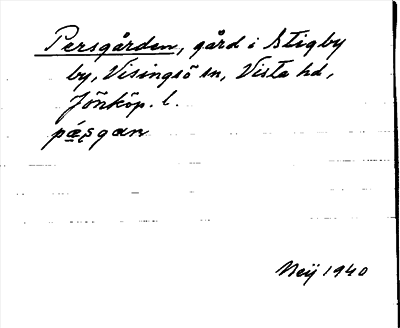 Persgården, gård i Stigby
by, Visingsö sn, Vista hd,
Jönköp. l.
pá̱ʂgan
Neij 1940